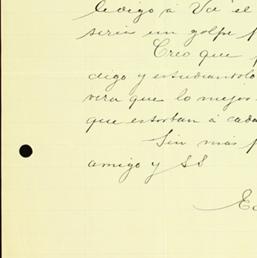 le digo á Vd el
seria un golpe
Creo que
digo y estudiandolo
vera que lo mejor
que estorban á cada
Sin mas
amigo y SS